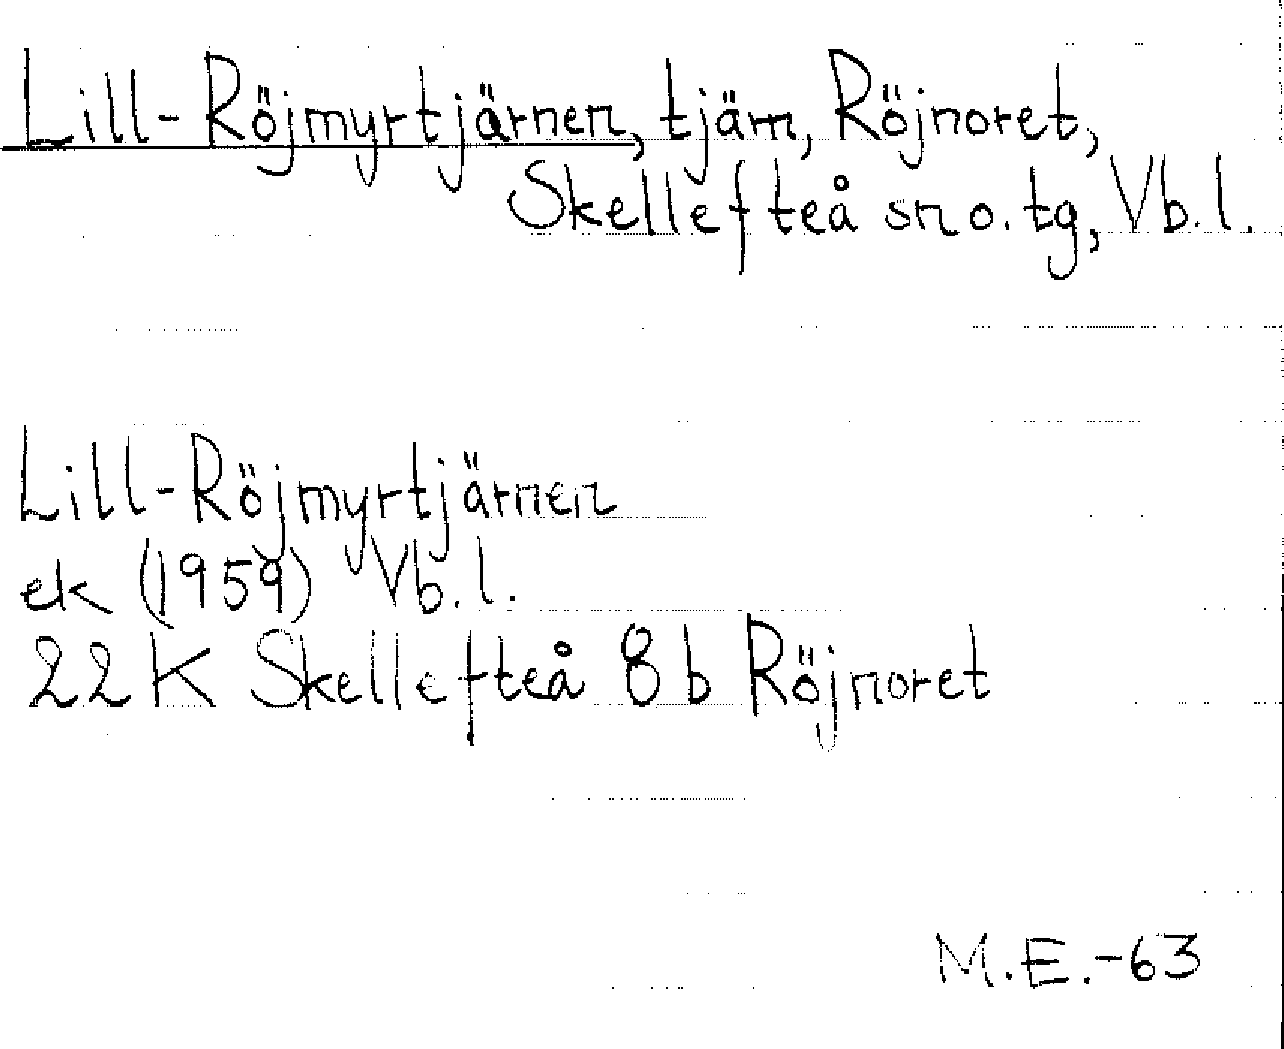 Lill-Röjmyrtjärnen, tjärn, Röjnoret,
Skellefteå sn o. tg, Vb. l.
Lill-Röjmyrtjärnen
ek (1959) Vb. l.
22 K Skellefteå 8 b Röjnoret
M.E.-63